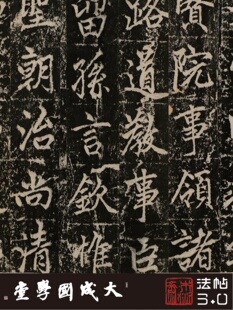 賢院事領諸
路道教事臣
留孫言欽惟
聖朝治尚清
大成國學堂
法帖
3.0